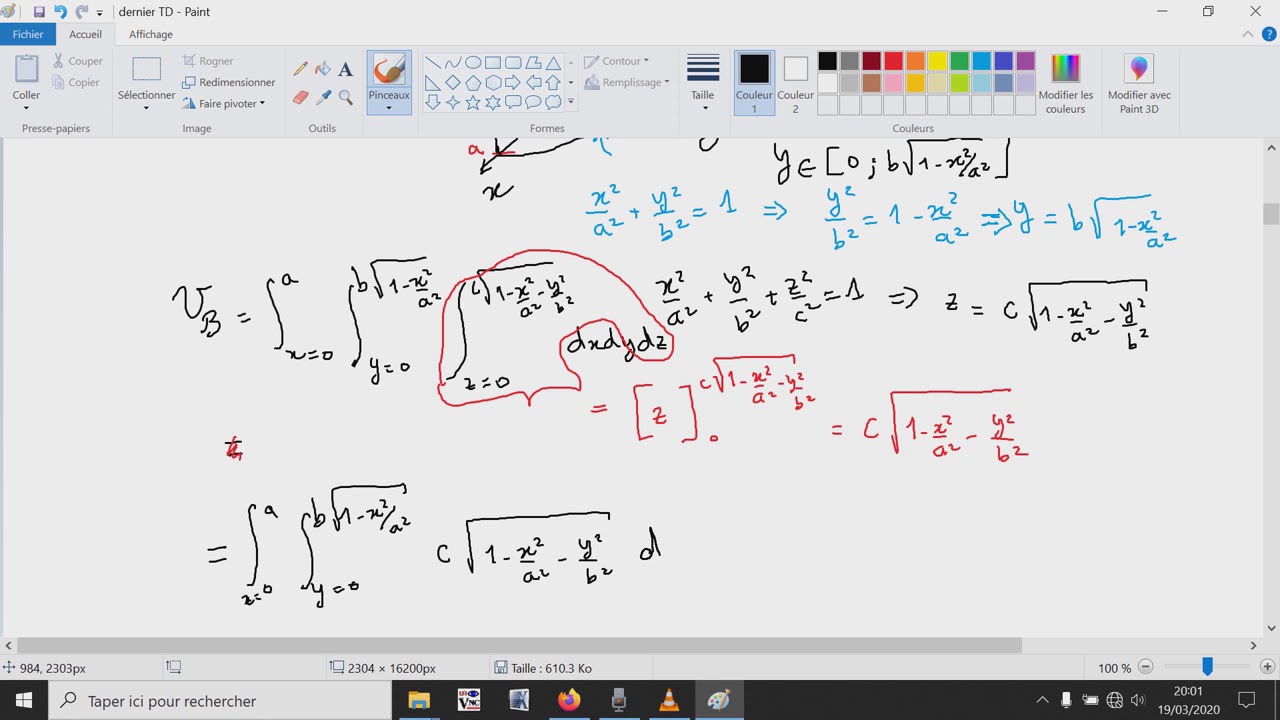 dernier TD - Paint
Fichier Accueil Affichage
Coller
Couper
Copier
Presse-papiers
Sélectionner
Rogner
Redimensionner
Faire pivoter
Image
Outils
Pinceaux
Contour
Remplissage
Formes
Taille
Couleur 1
Couleur 2
Couleurs
Modifier les couleurs
Modifier avec Paint 3D
a
x
y ∈ [0 ; b√(1-x²/a²)]
x²/a² + y²/b² = 1 ⇒ y²/b² = 1 - x²/a² ⇒ y = b√(1-x²/a²)
V_B = ∫_{x=0}^{a} ∫_{y=0}^{b√(1-x²/a²)} ∫_{z=0}^{c√(1-x²/a²-y²/b²)} dxdydz
x²/a² + y²/b² + z²/c² = 1 ⇒ z = c√(1-x²/a² - y²/b²)
= [z]_0^{c√(1-x²/a²-y²/b²)} = c√(1-x²/a² - y²/b²)
= ∫_{x=0}^{a} ∫_{y=0}^{b√(1-x²/a²)} c√(1-x²/a² - y²/b²) d
984, 2303px
2304 × 16200px
Taille : 610.3 Ko
100 %
Taper ici pour rechercher
20:01
19/03/2020